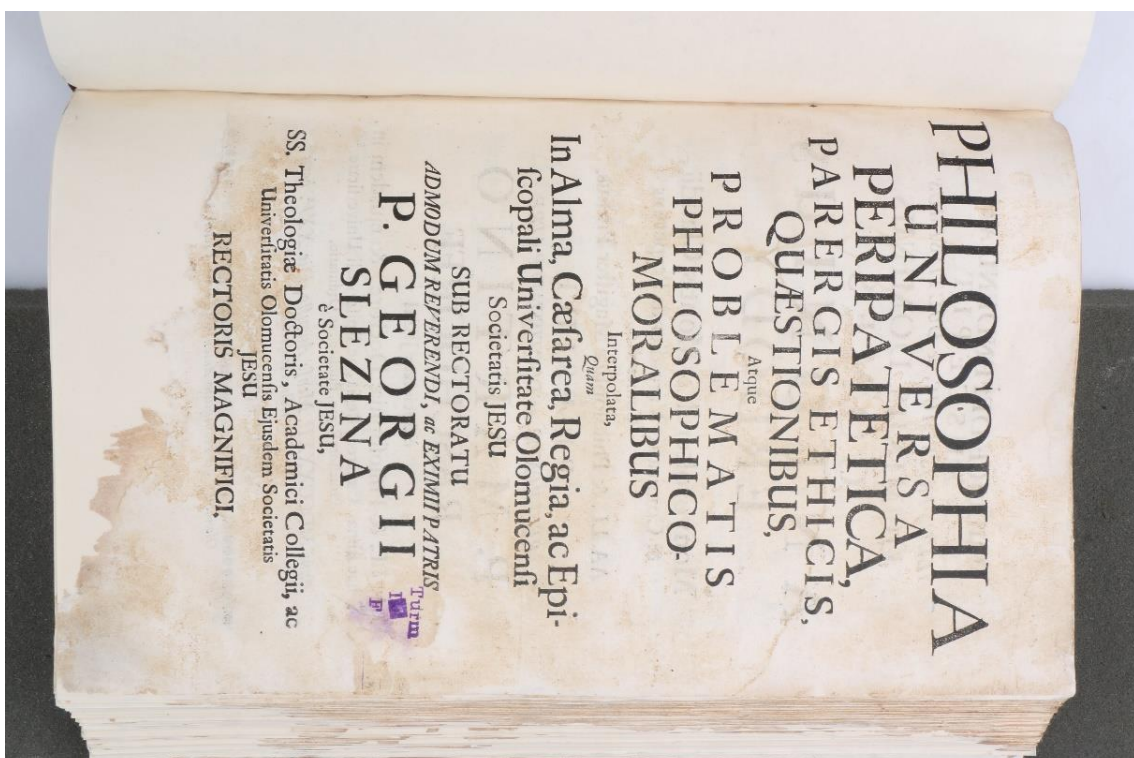 PHILOSOPHIA
UNIVERSA
PERIPATETICA,
PARERGIS ETHICIS,
QUÆSTIONIBUS,
Atque
PROBLEMATIS
PHILOSOPHICO-
MORALIBUS
Interpolata,
Quam
In Alma, Cæſarea, Regia, ac Epi-
ſcopali Univerſitate Olomucenſi
Societatis JESU
SUB RECTORATU
ADMODUM REVERENDI, ac EXIMII PATRIS
P. GEORGII
SLEZINA
è Societate JESU,
SS. Theologiæ Doctoris, Academici Collegii, ac
Univerſitatis Olomucenſis Ejusdem Societatis
JESU
RECTORIS MAGNIFICI,
Turm